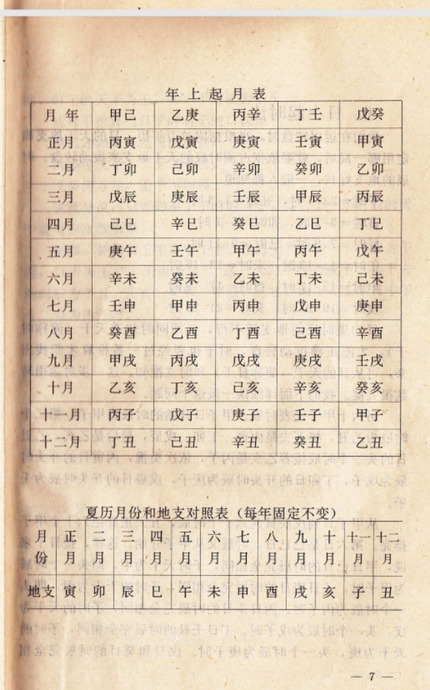 年上起月表
月 年 甲己 乙庚 丙辛 丁壬 戊癸
正月 丙寅 戊寅 庚寅 壬寅 甲寅
二月 丁卯 己卯 辛卯 癸卯 乙卯
三月 戊辰 庚辰 壬辰 甲辰 丙辰
四月 己巳 辛巳 癸巳 乙巳 丁巳
五月 庚午 壬午 甲午 丙午 戊午
六月 辛未 癸未 乙未 丁未 己未
七月 壬申 甲申 丙申 戊申 庚申
八月 癸酉 乙酉 丁酉 己酉 辛酉
九月 甲戌 丙戌 戊戌 庚戌 壬戌
十月 乙亥 丁亥 己亥 辛亥 癸亥
十一月 丙子 戊子 庚子 壬子 甲子
十二月 丁丑 己丑 辛丑 癸丑 乙丑
夏历月份和地支对照表（每年固定不变）
月份 正月 二月 三月 四月 五月 六月 七月 八月 九月 十月 十一月 十二月
地支 寅 卯 辰 巳 午 未 申 酉 戌 亥 子 丑
— 7 —